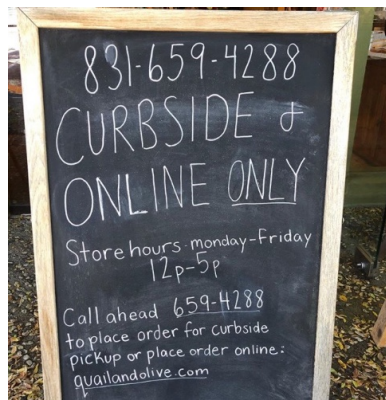 831-659-4288
CURBSIDE &
ONLINE ONLY
Store hours · monday-Friday
12p-5p
Call ahead 659-4288
to place order for curbside
pickup or place order online:
quailandolive.com